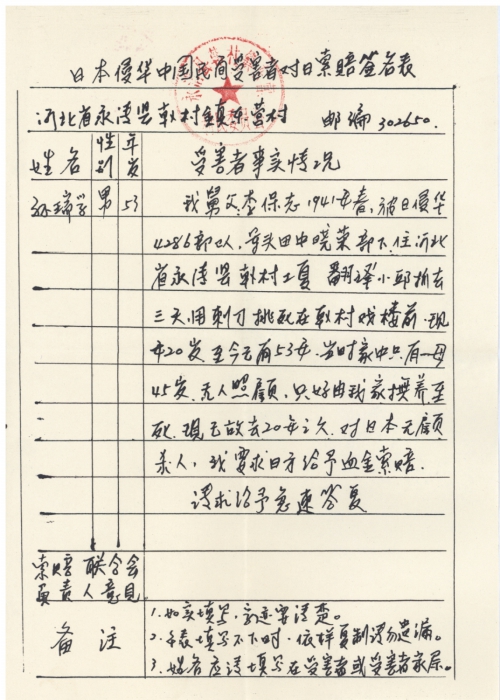 日本侵华中国民间受害者对日索赔签名表
河北省永清县韩村镇东营村 邮编 302650
姓名 性别 年岁 受害者事实情况
孙瑞学 男 53 我舅父李保志1941年春，被日侵华
4286部队人，头田中晓荣部下，住河北
省永清县韩村工夏 翻译小邱抓去
三天，用刺刀挑死在韩村戏楼前，现
年20岁至今已有53年，当时家中只有一母
45岁，无人照顾，只好由我家抚养至
死，现已故去20年之久，对日本无顾
杀人，我要求日方给予血金索赔，
请求给予急速答复
索赔联合会
负责人意见
备注
1.如实填写，字迹要清楚。
2.本表填写不下时，依样复制请勿遗漏。
3.姓名应该填写在受害者或受害者家属。